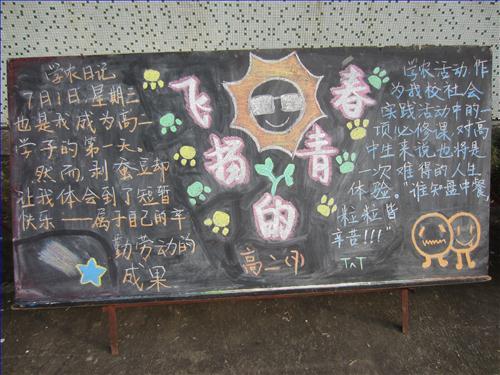 学农日记
7月1日,星期三
也是我成为高一
学子的第一天。
然而剥蚕豆却
让我体会到了短暂
快乐——属于自己的辛
勤劳动的
成果
飞扬的青春
高二(1)
学农活动,作
为我校社会
实践活动中的一
项必修课,对高
中生来说也将是
一次难得的人生
体验。"谁知盘中餐
粒粒皆
辛苦!!!"
T^T